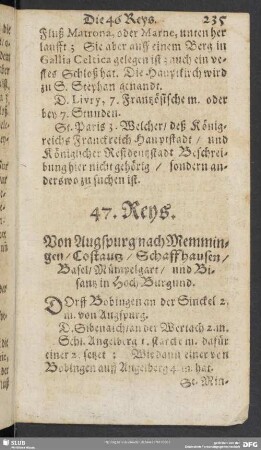 Die 46 Reys. 235
Fluß Matrona, oder Marne, unten her
laufft; Sie aber auff einem Berg in
Gallia Celtica gelegen ist; auch ein ve-
stes Schloß hat. Die Hauptkirch wird
zu S. Stephan genandt.
D. Livry, 7. Frantzösische m. oder
bey 7. Stunden.
St. Paris 3. Welcher/ deß König-
reichs Franckreich Hauptstadt/ und
Königlicher Residentzstadt Beschrei-
bung hier nicht gehörig/ sondern an-
derswo zu suchen ist.
47. Reys.
Von Augspurg nach Memmin-
gen/ Costantz/ Schaffhausen/
Basel/ Mümpelgart/ und Bi-
santz in Hoch Burgund.
DOrff Bobingen an der Sinckel 2.
m. von Augspurg.
D. Sibenaich/ an der Wertach 2. m.
Schl. Angelberg 1. starcke m. dafür
einer 2. setzet: Wie dann einer von
Bobingen auff Angelberg 4. m. hat.
St. Min-
SLUB
DFG